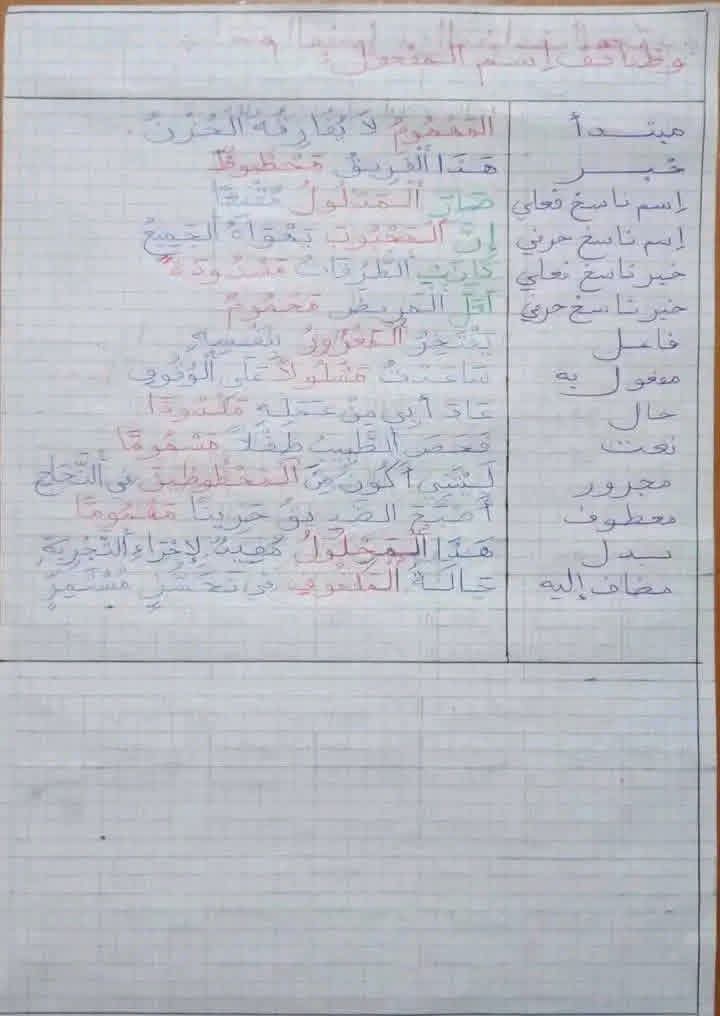 وظائف اسم المفعول
مبتدأ المَهْمُومُ لاَ يُفَارِقُهُ الْحُزْنُ.
خبر هَذَا الْفَرِيقُ مَحْظُوظٌ
إسم ناسخ فعلي صَارَ الْمَدْلُولُ
إسم ناسخ حرفي إِنَّ الْمَحْبُوبَ يَهْوَاهُ الْجَمِيعُ
خبر ناسخ فعلي كَانَتِ الطُّرُقَاتُ مَسْدُودَةً
خبر ناسخ حرفي الْمَرِيضَ مَحْمُومٌ
فاعل يَفْتَخِرُ الْمَغْرُورُ بِنَفْسِهِ
مفعول به سَاعَدْتُ مَشْلُولاً عَلَى الْوُقُوفِ
حال عَادَ أَبِي مِنْ عَمَلِهِ مَكْدُودًا
نعت فَحَصَ الطَّبِيبُ طِفْلاً مَسْمُومًا
مجرور لَيْتَنِي أَكُونُ مِنَ الْمَحْظُوظِينَ فِي النَّجَاحِ
معطوف أَصْبَحَ الصَّدِيقُ حَزِينًا مَغْمُومًا
بدل هَذَا الْمَحْلُولُ مُفِيدٌ لِإجْرَاءِ التَّجْرِبَةِ
مضاف إليه حَالَةُ الْمَلْهُوفِ فِي تَحَسُّنٍ مُسْتَمِرٍّ